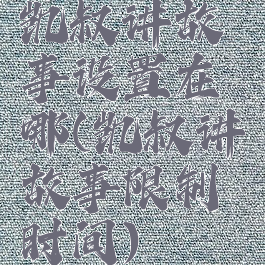 凯叔讲故
事设置在
哪(凯叔讲
故事限制
时间)